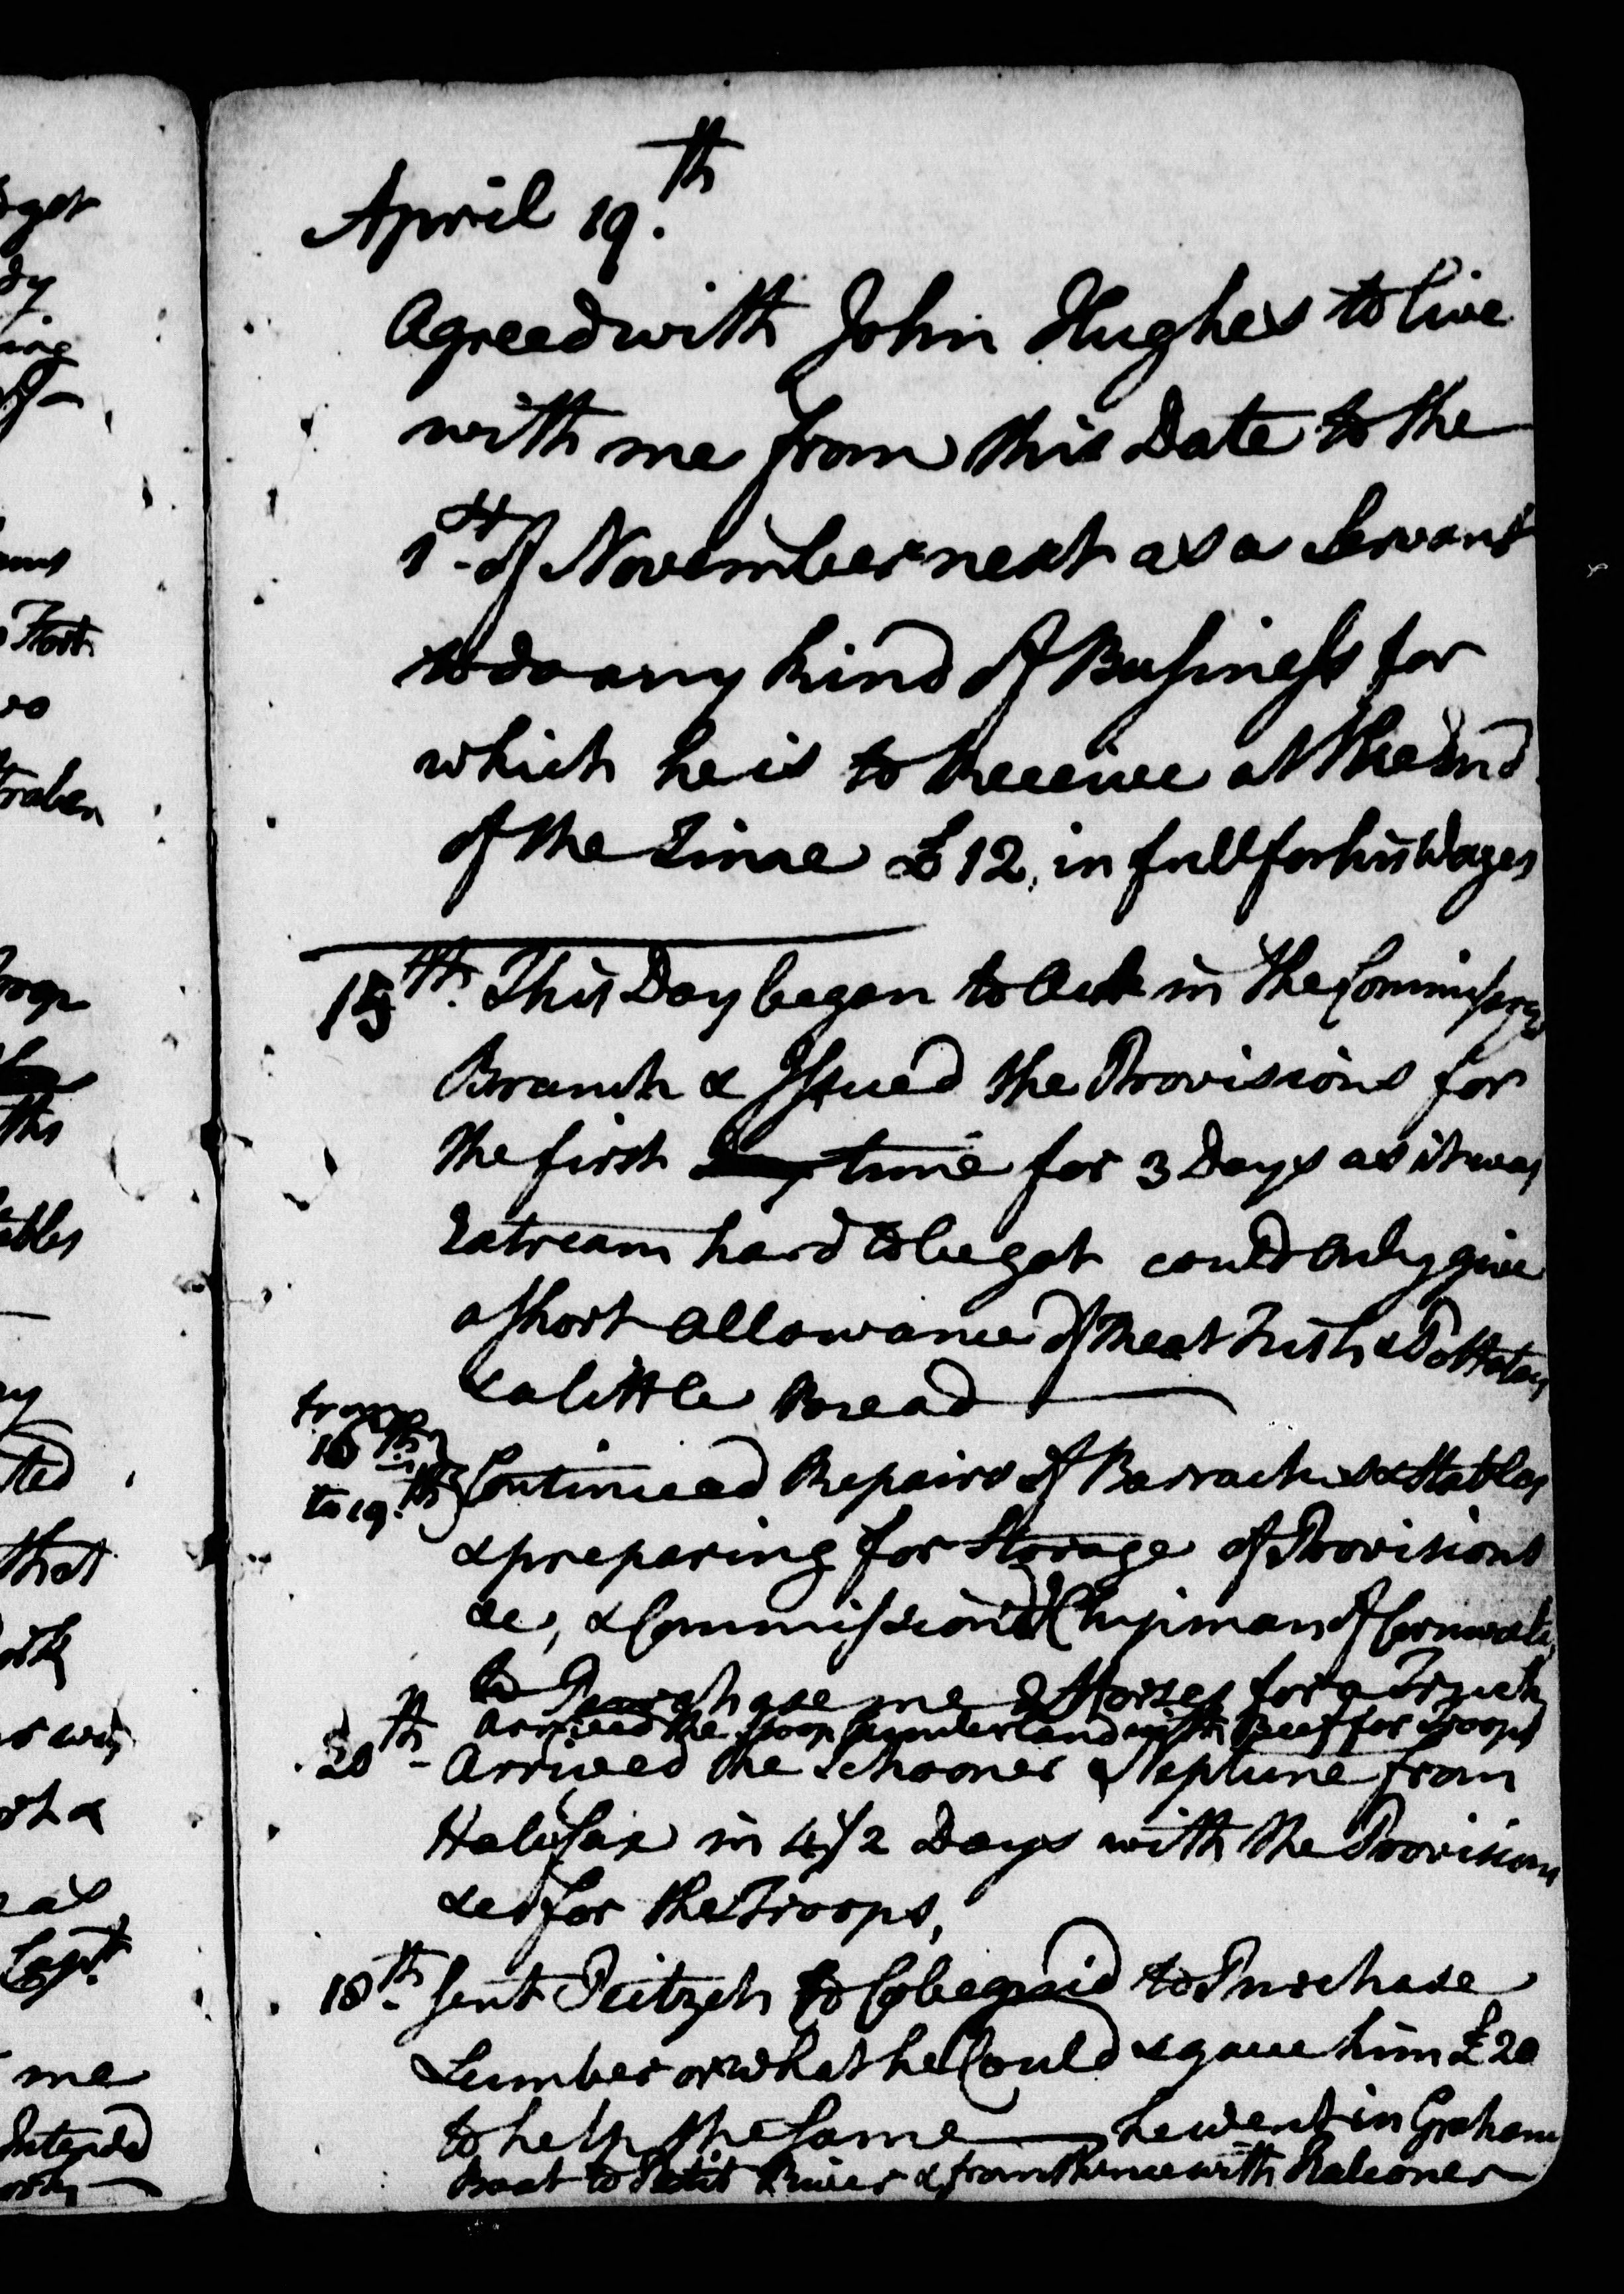 April 19.th
Agreed with John Hughes to live
with me from this Date to the
1st of November next as a Servant
to do any kind of Business for
which he is to Receive at the End
of the Time £12, in full for his Wages
15th. This Day began to Act in the Commissary
Branch & Issued the Provisions for
the first time for 3 Days as it was
Extream hard to be got could only give
a short allowance of Meat Fish & Pottatoes
& a little Bread
from
18th
to 19.th Continued Repairs of Barracks & Stables
& preparing for Storage of Provisions
&c, & Commissiond Chipman of Cornwalis
to Purchase me 2 Horses for a Truck
Arrived the Sloop Cumberland with Beef for Troops
20th Arrived the Schooner Neptune from
Halifax in 4 1/2 Days with the Provisions
&c for the Troops,
18th. Sent Peitzch to Cobequid to Purchase
Lumber or what he Could & gave him £20
to help the Same he went in Graham
Boat to Petit River & from thence with